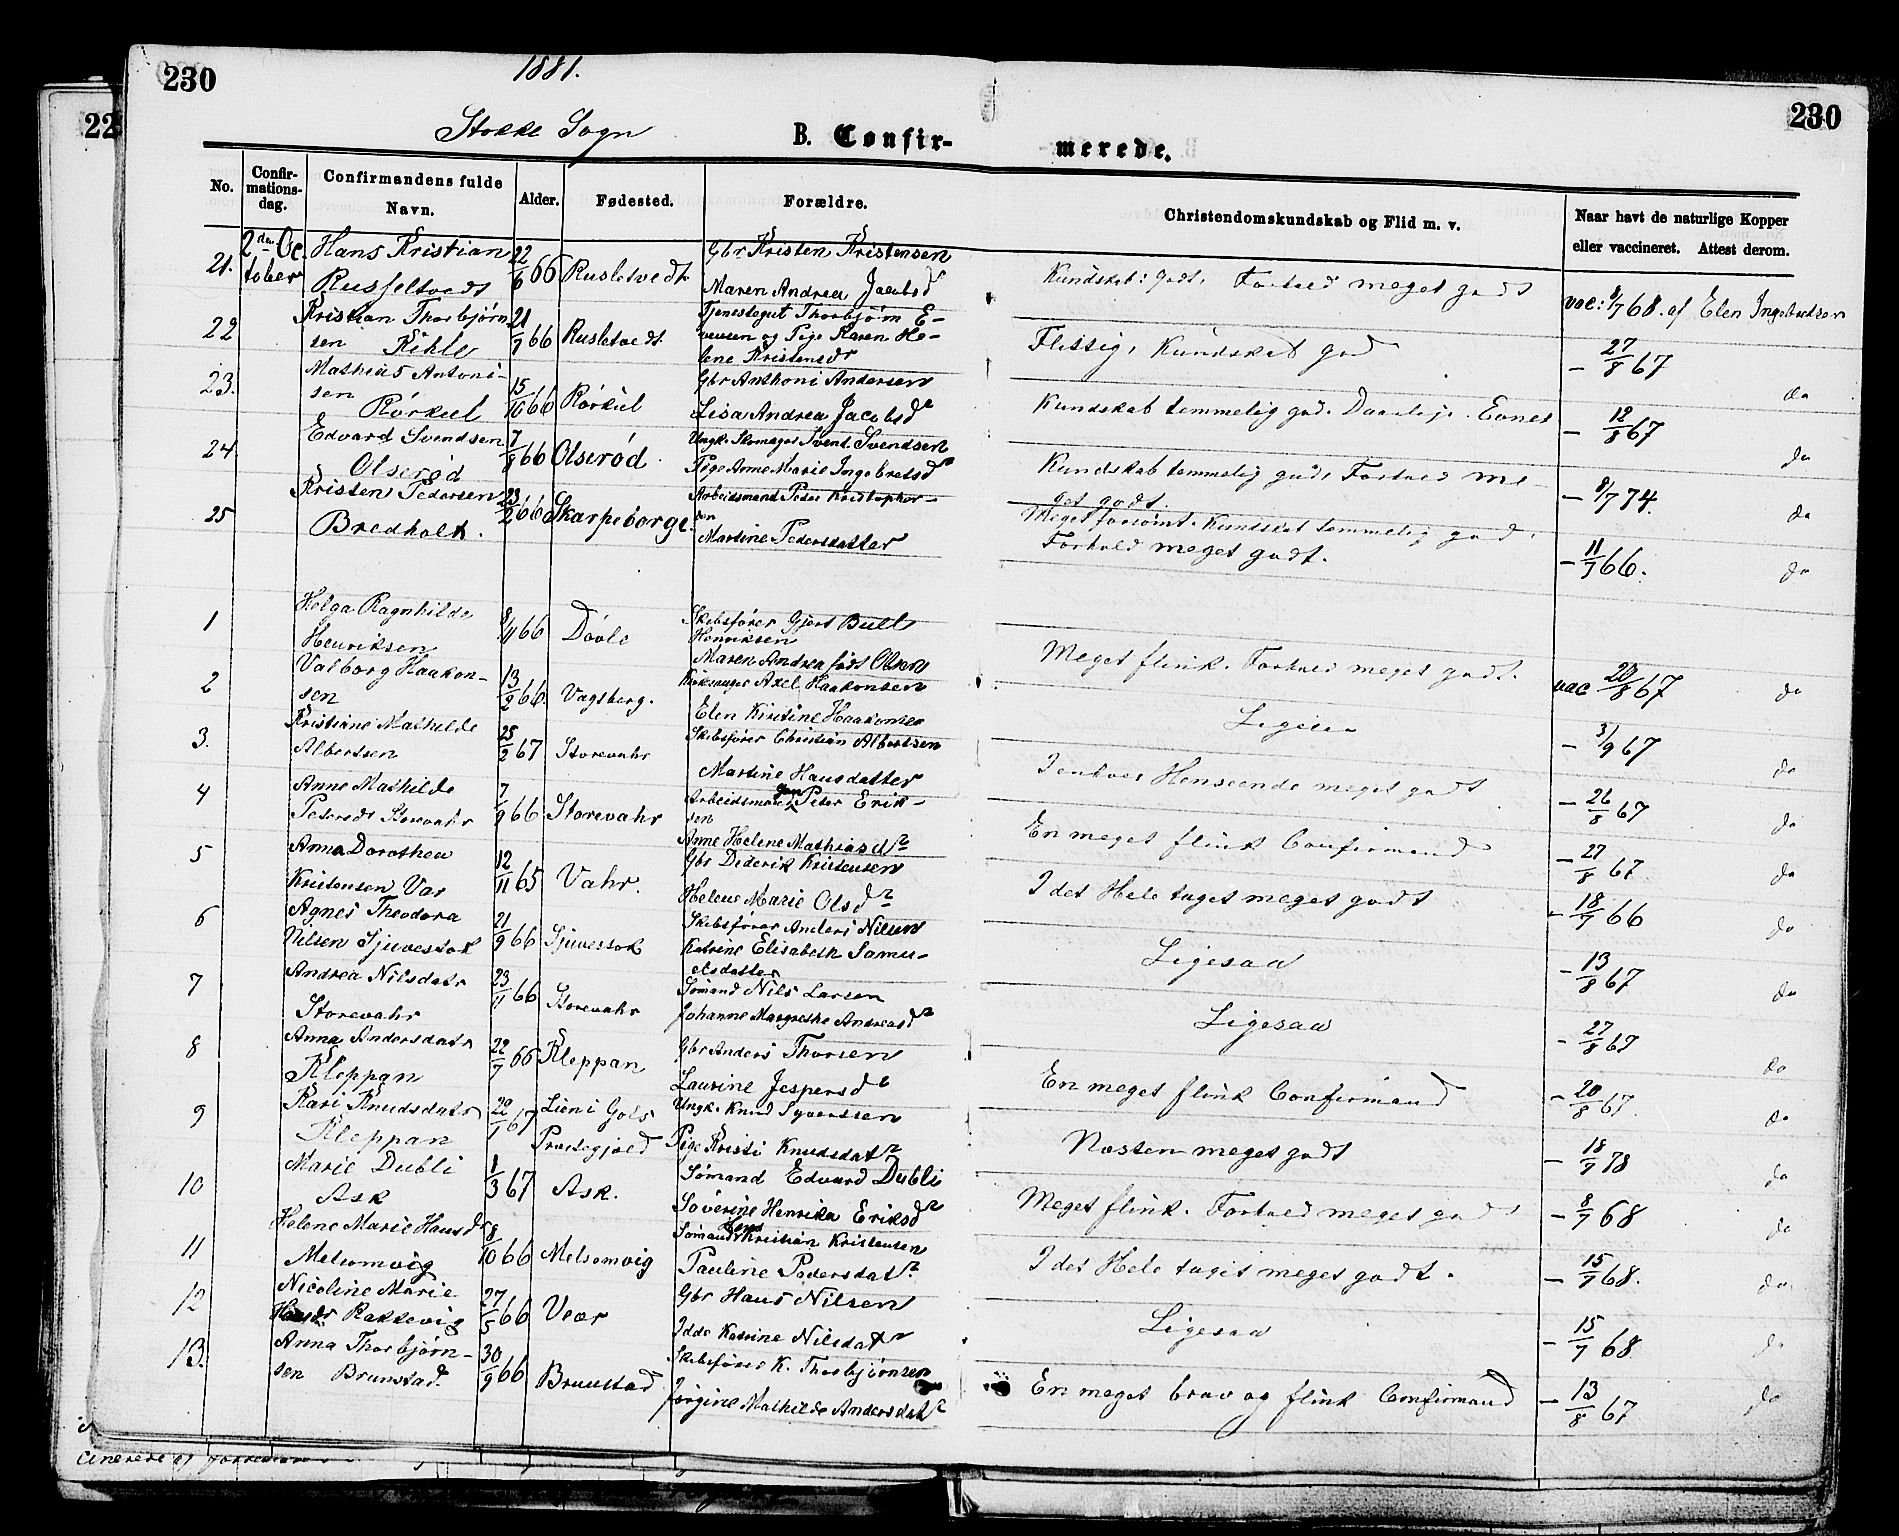 230
1881.
230
22
Stokke Sogn
B. Confir-
merede.
No.
Confir-
mations-
dag.
Confirmandens fulde
Navn.
Alder.
Fødested.
Forældre.
Christendomskundskab og Flid m. v.
Naar havt de naturlige Kopper
eller vaccineret. Attest derom.
21. 2den Oc- Hans Kristian 22/6 66 Rusletvedt Gbr Kristen Kristensen
tober Russeltvedt Maren Andrea Jacobsdr
Kundskab: godt, Forhold meget godt vac: 8/7 68. af Elen Ingebretsen
22 Kristian Thorbjørn 21/7 66 Rusletvedt Tjenestegut Thorbjørn E-
sen Rihle vensen og Pige Karen He-
lene Kristensdr
Flittig, Kundskab god - 27/8 67 do
23. Mathias Antoni- 15/10 66 Rørkul Gbr Anthoni Andersen
sen Rørkul Lisa Andrea Jacobsdr
Kundskab temmelig god. Daarlige Evner - 12/8 67 do
24 Edvard Svendsen 7/8 66 Olserød Ungk. Skomager Svend Svendsen
Olserød Pige Anne Marie Ingebretsdr
Kundskab temmelig god, Forhold me-
get godt. - 8/7 74. do
25 Kristen Pedersen 23/2 66 Skarpeborge Arbeidsmand Peder Kristopher-
Bredholt. sen
Martine Pedersdatter
Meget forsømt. Kundskab temmelig god,
Forhold meget godt. - 11/7 66. do
1 Helga Ragnhilde 8/11 66 Døvle Skibsfører Gjert Bull
Henriksen Henriksen
Maren Andrea født Olsen
Meget flink. Forhold meget godt. vac 20/8 67 do
2 Valborg Haakon- 13/2 66. Vagsberg. Kirkesanger Axel Haakonsen
sen Elen Kirstine Haakonsen
Ligesaa - 3/9 67 do
3. Kristiane Mathilde 25/2 67 Storevahr Skibsfører Christian Albertsen
Albertsen Martine Hansdatter
I enhver Henseende meget godt - 26/8 67 do
4 Anne Mathilde 7/9 66 Storevahr Arbeidsmand Peter Erik-
Petersdr Storevahr sen
Anne Helene Mathiasdr
En meget flink Confirmand - 27/8 67. do
5 Anna Dorothea 12/11 65 Vahr. Gbr Dederik Kristensen
Kristensen Var Helene Marie Olsdr
I det Hele taget meget godt - 18/7 66 do
6 Agnes Theodora 21/9 66 Sjuvestok Skibsfører Anders Nilsen
Nilsen Sjuvestok Katrine Elisabeth Samu-
elsdatter
Ligesaa - 13/8 67 do
7 Andrea Nilsdatr 23/11 66 Storevahr Sømand Nils Larsen
Storevahr Johanne Margrethe Andreasdr
Ligesaa - 27/8 67 do
8 Anna Andersdatr 22/7 66 Kleppan Gbr Anders Thorsen
Kleppan Laurine Jespersdr
En meget flink Confirmand - 20/8 67. do
9 Kari Knudsdatr 20/1 67 Lien i Gols Ungk. Knud Syvertsen
Kleppan Præstegjæld Pige Kristi Knudsdatr
Næsten meget godt - 18/7 78 do
10 Marie Dubli 1/3 67 Ask. Sømand Edvard Dubli
Ask Søverine Henrika Eriksdr
Meget flink. Forhold meget godt - 8/7 68 do
11 Helene Marie Hansdr 8/10 66 Melsomvig Sømand Hans Kristian Kristensen
Melsomvig Pauline Pedersdatr
I det Hele taget meget godt. - 15/7 68. do
12 Nicoline Marie 27/5 66 Veær Gbr Hans Nilsen
Hansdr Rakkevig Idde Katrine Nilsdatr
Ligesaa - 15/7 68 do
13. Anna Thorbjørn- 30/9 66 Brunstad Skibsfører K. Thorbjørnsen
sen Brunstad. Jørgine Mathilde Andersdatr
En meget brav og flink Confirmand - 13/8 67 do